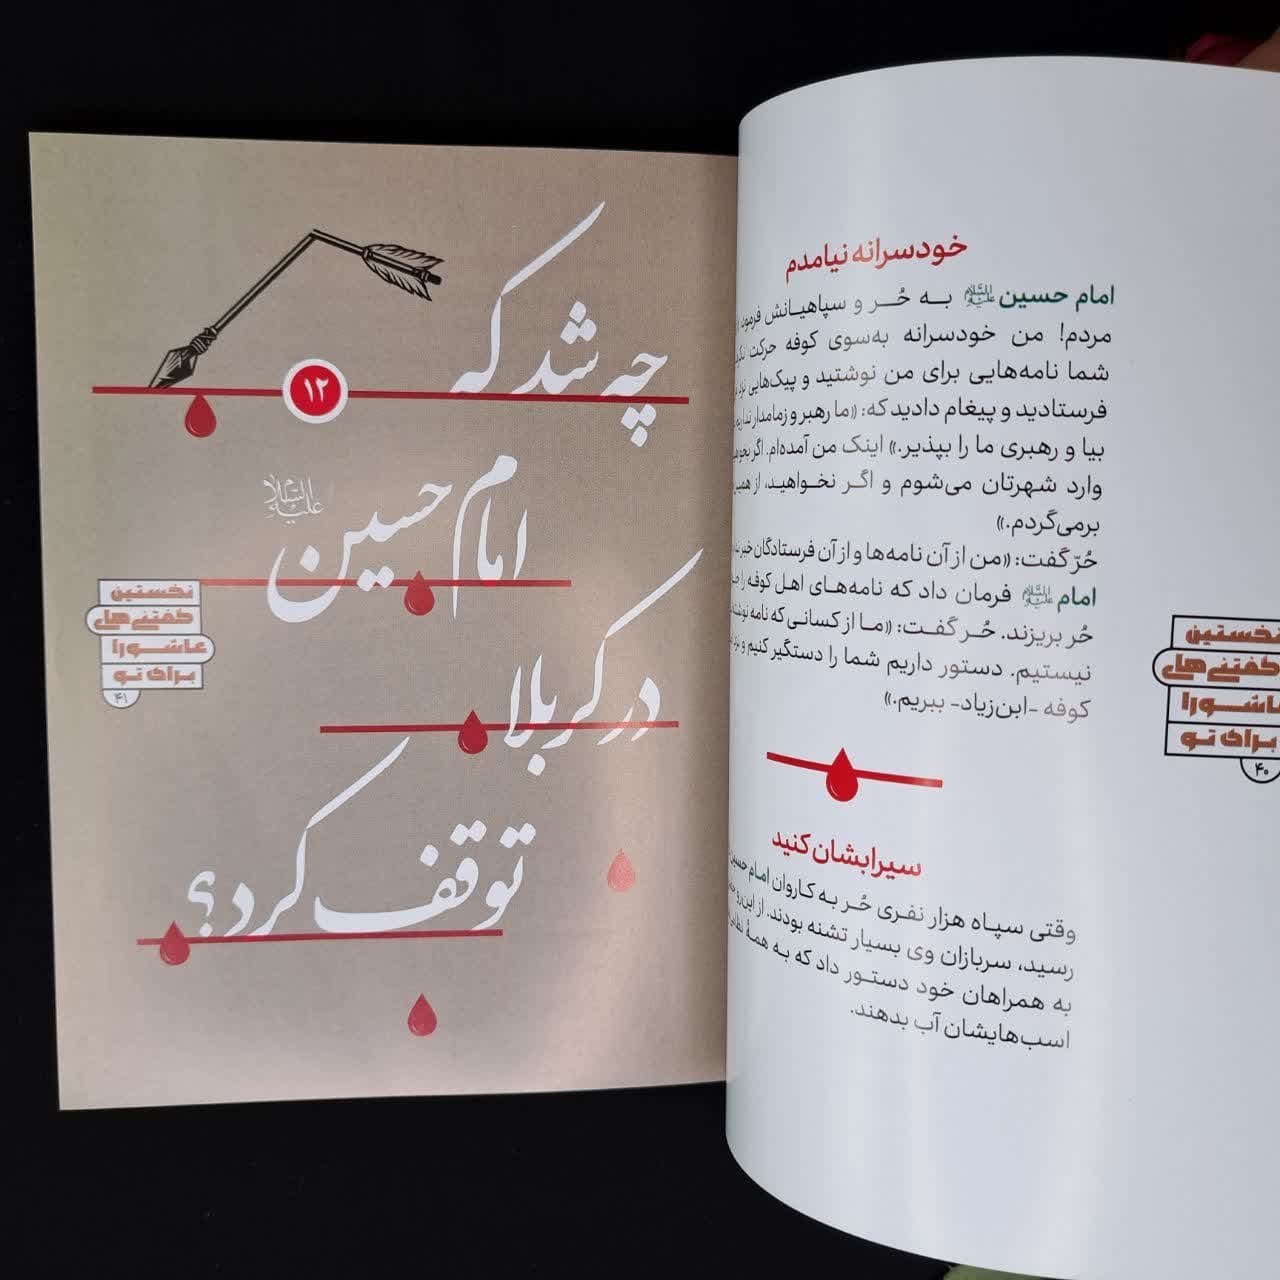 خودسرانه نیامدم
امام حسین علیه‌السلام به حُر و سپاهیانش فرمود
مردم! من خودسرانه به‌سوی کوفه حرکت
شما نامه‌هایی برای من نوشتید و پیک‌هایی نزد
فرستادید و پیغام دادید که: «ما رهبر و زمامدار نداریم
بیا و رهبری ما را بپذیر.» اینک من آمده‌ام. اگر
وارد شهرتان می‌شوم و اگر نخواهید، از
برمی‌گردم.»
حُرّ گفت: «من از آن نامه‌ها و از آن فرستادگان خبر
امام علیه‌السلام فرمان داد که نامه‌های اهل کوفه را
حُر بریزند. حُر گفت: «ما از کسانی که نامه
نیستیم. دستور داریم شما را دستگیر کنیم و نزد
کوفه -ابن‌زیاد- ببریم.»
سیرابشان کنید
وقتی سپاه هزار نفری حُر به کاروان امام حسین
رسید، سربازان وی بسیار تشنه بودند. از این‌رو
به همراهان خود دستور داد که به همهٔ
اسب‌هایشان آب بدهند.
نخستین
گفتنی‌های
عاشورا
برای تو
۴۰
۱۲
چه شد که
امام حسین علیه السلام
در کربلا
توقف کرد؟
نخستین
گفتنی‌های
عاشورا
برای تو
۴۱